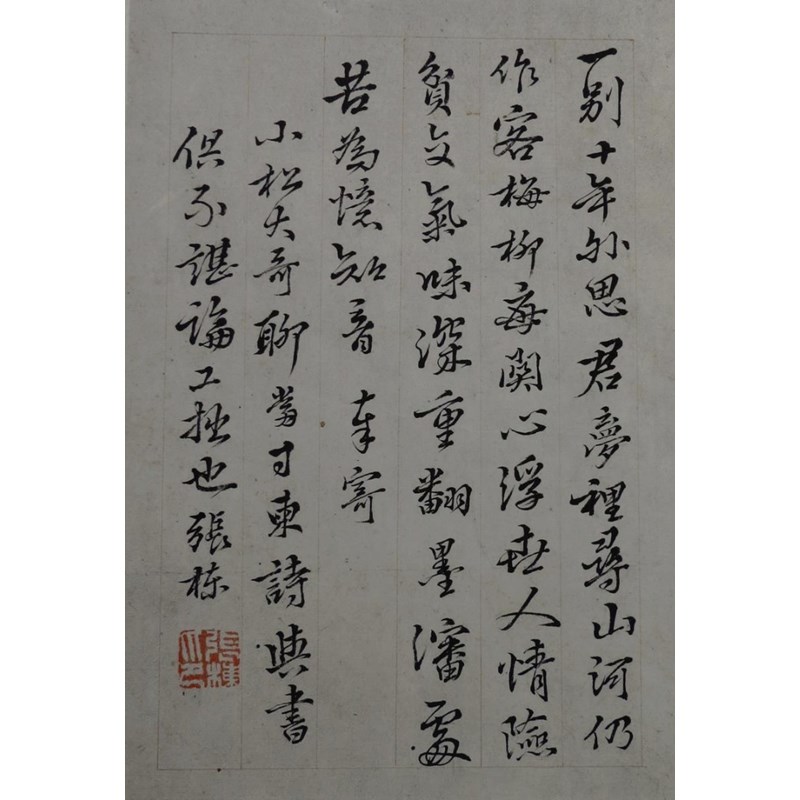 一别十年外思君夢裡尋山河仍
作客梅柳每関心浮世人情險
貧交氣味深重翻墨瀋處
苦為憶知音奉寄
小松大哥聊當寸柬詩與書
俱不堪論工拙也張棟
張棟